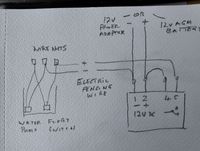 — OR —
12V
POWER
ADAPTOR
- +
12V AGM
BATTERY
WIRE NUTS
+
-
ELECTRIC
FENCING
WIRE
WATER
PUMP
FLOAT
SWITCH
1 2 4 5
- +
12V DC